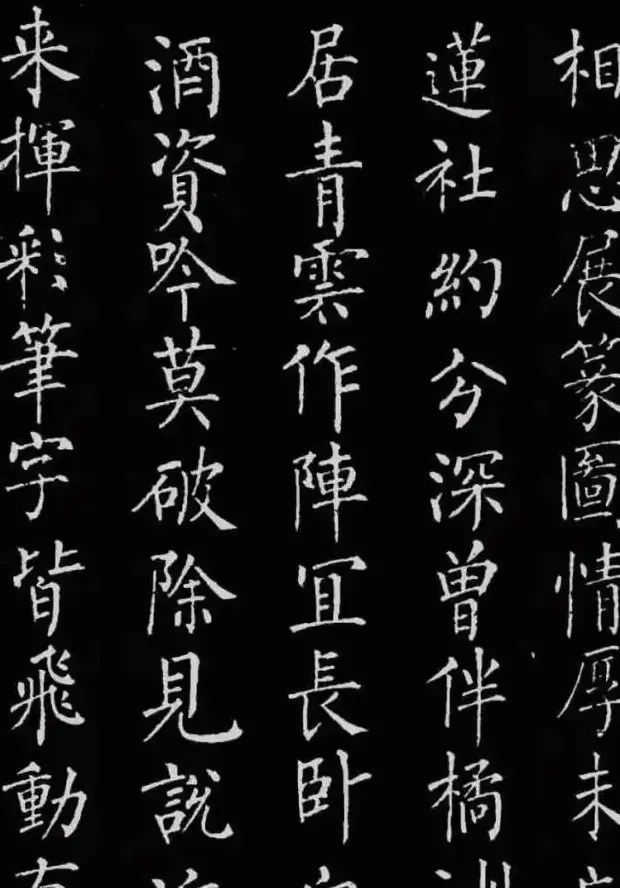 相思展篆圖情厚未
蓮社約分深曾伴橘
居青雲作陣冝長卧
酒資吟莫破除見說
来揮彩筆字皆飛動